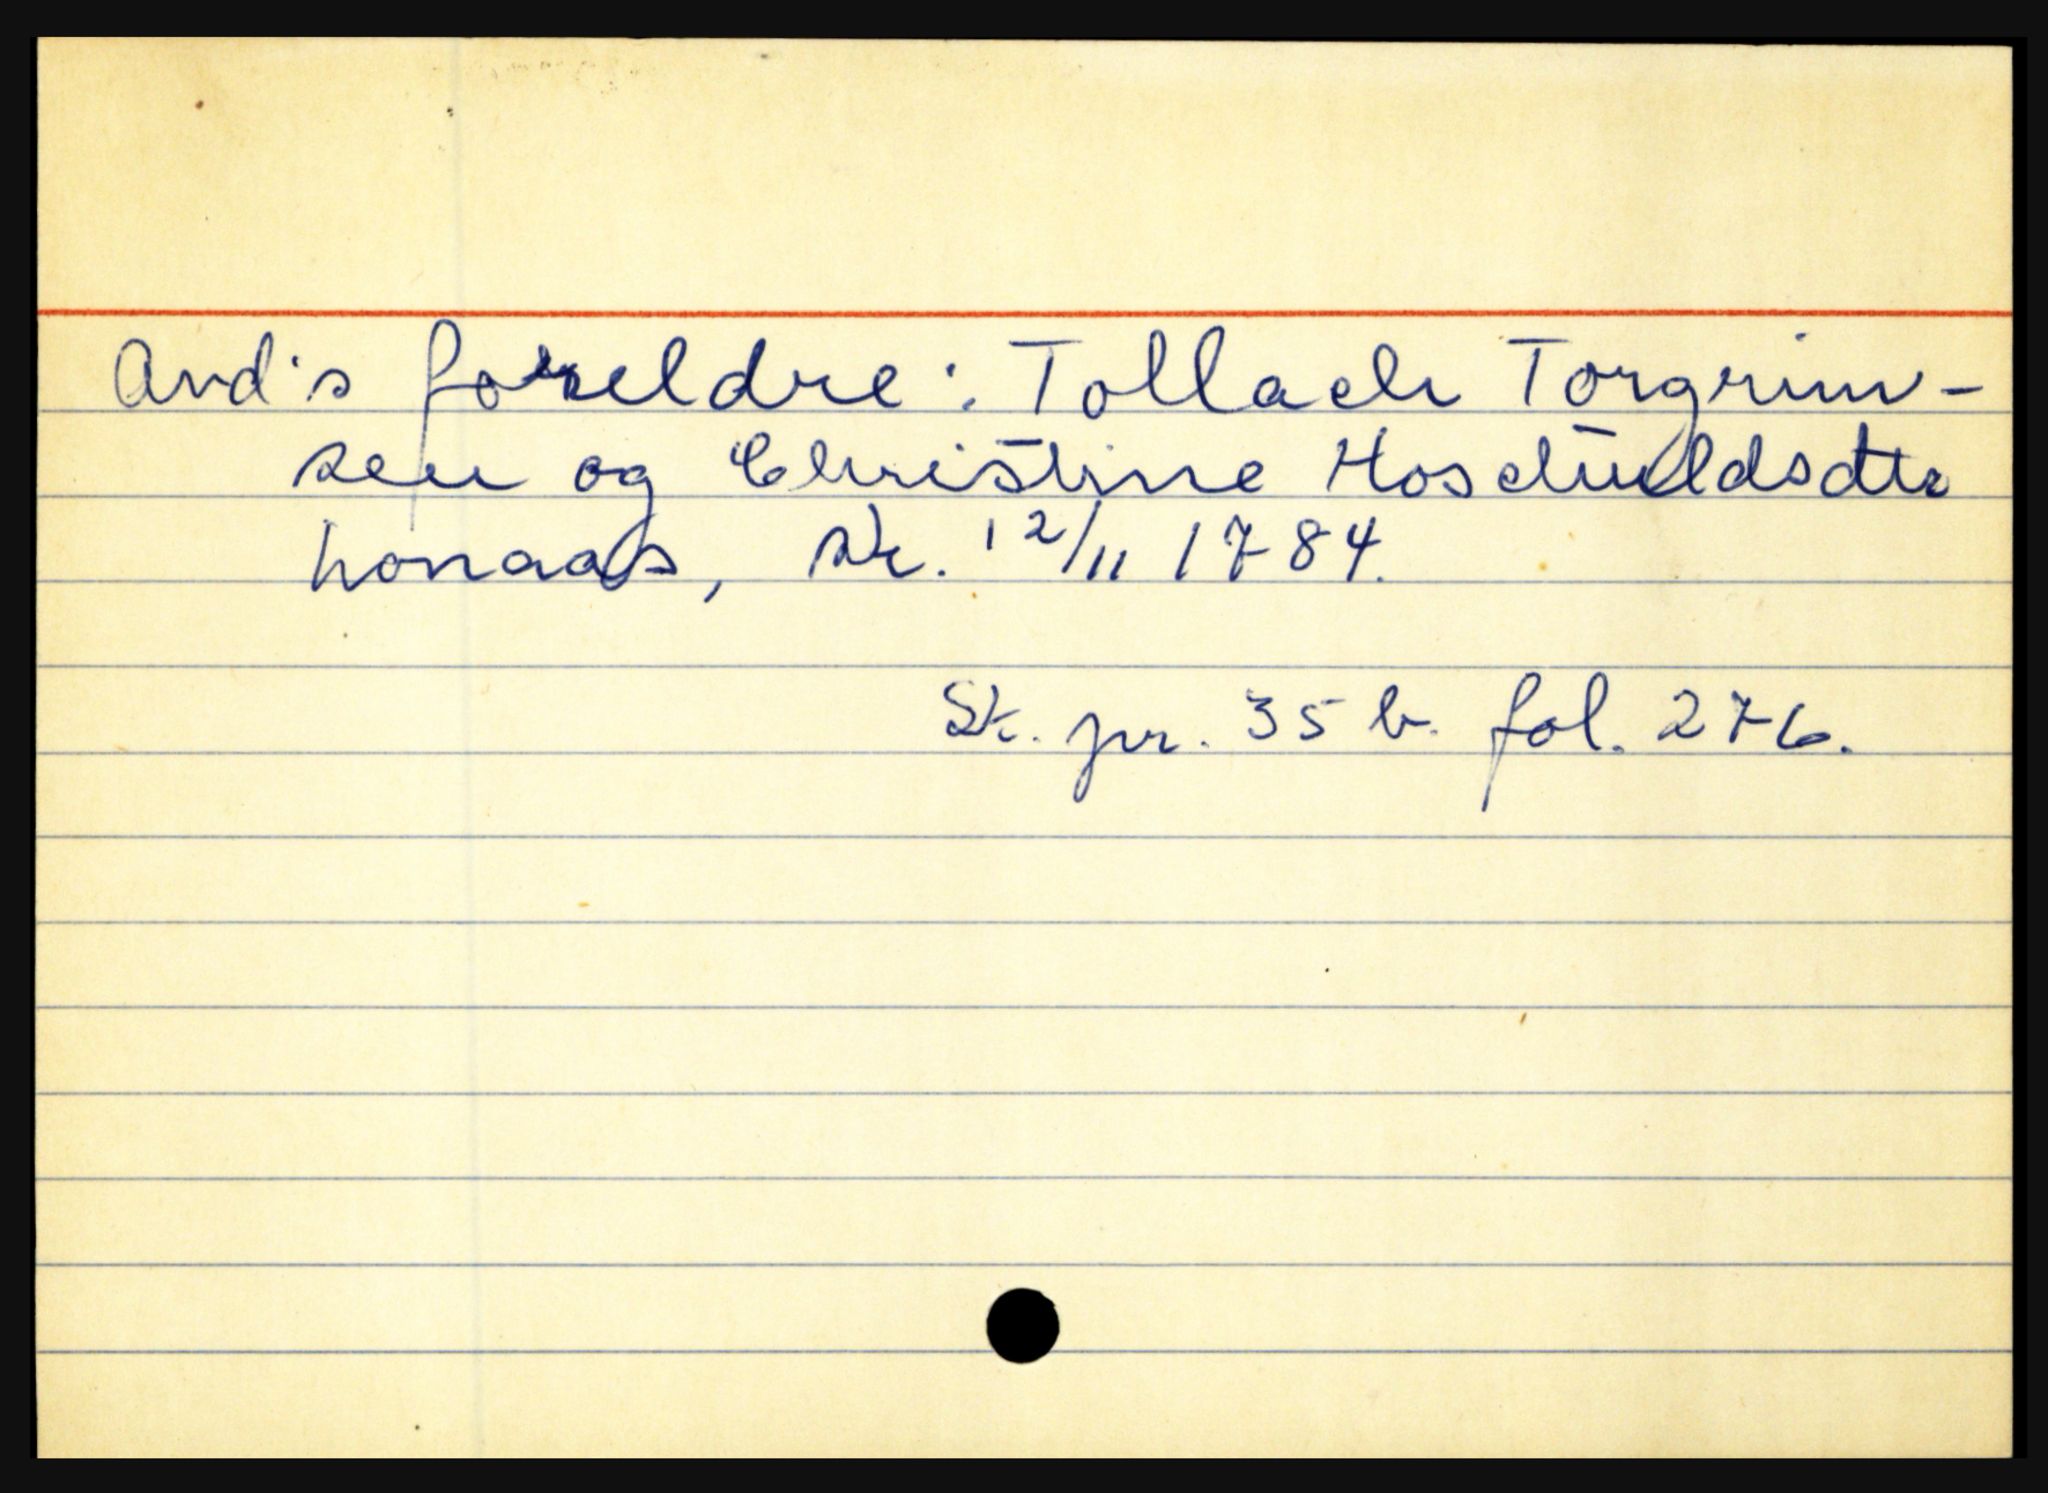 Avd's foreldre: Tollach Torgrim-
sen og Christine Hoschuldsdtr
Honaas, Sk. 12/11 1784.
Sk. pr. 35 b. fol. 276.